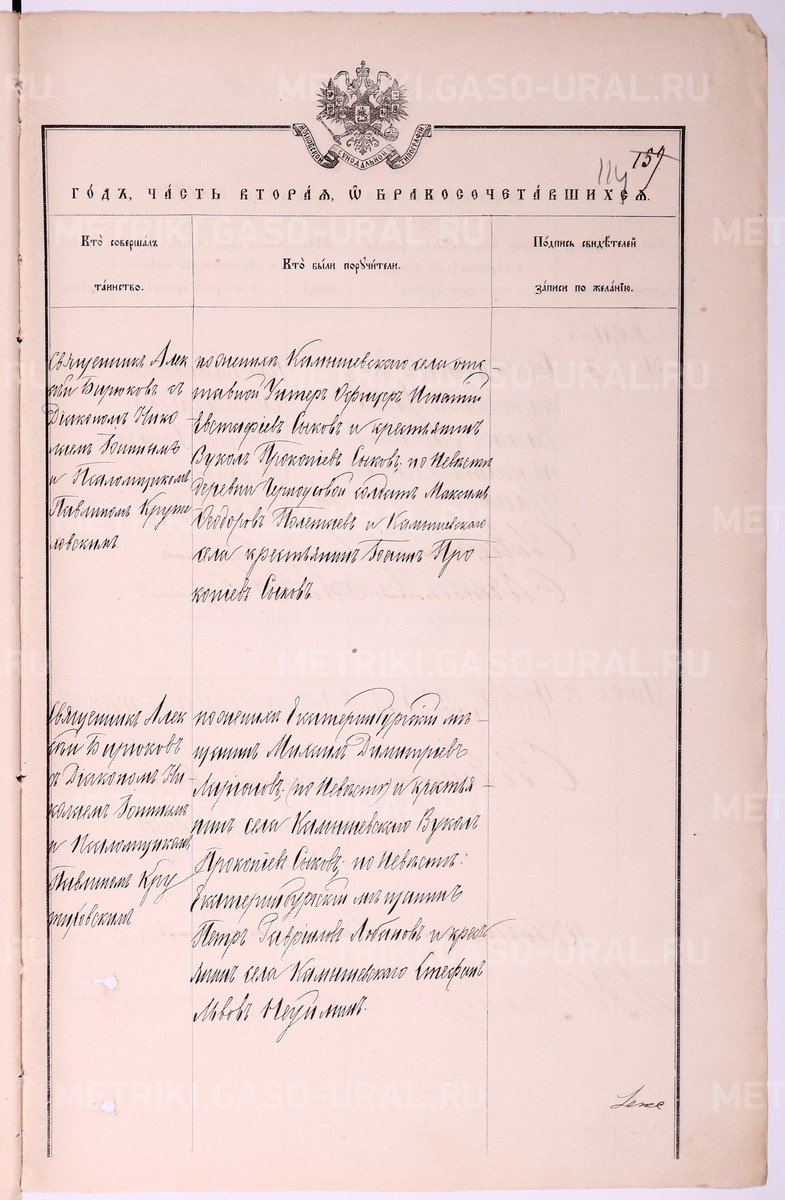 METRIKI.GASO-URAL.RU
МОСКОВСКОЙ СѴНОДАЛЬНОЙ ТИПОГРАФІИ
114 159
ГОДЪ, ЧАСТЬ ВТОРАЯ, Ѡ БРАКОСОЧЕТАВШИХСЯ.
Кто совершалъ
таинство.
Кто были поручители.
Подпись свидѣтелей
записи по желанію.
Священникъ Алек
сѣй Бирюковъ съ
Діакономъ Нико
лаемъ
и Псаломщикомъ
Павлиномъ Крути
ховскимъ.
по женихѣ Камышевскаго села отс
тавной Унтеръ Офицеръ Игнатій
Евстафіевъ Сысковъ и крестьянинъ
Вуколъ Прокопіевъ Сысковъ; по Невѣстѣ
деревни Черноусовой солдатъ Максимъ
Ѳеодоровъ и Камышевскаго
села крестьянинъ Іоаннъ Про
копіевъ Сысковъ.
Священникъ Алек
сѣй Бирюковъ
съ Діакономъ Ни
колаемъ
и Псаломщикомъ
Павлиномъ Кру
тиховскимъ
по женихѣ Екатеринбургскій мѣ
щанинъ Михаилъ Димитріевъ
Ларіоновъ, (по Невѣстѣ) и крестья
нинъ села Камышевскаго Вуколъ
Прокопіевъ Сысковъ; по Невѣстѣ:
Екатеринбургскій мѣщанинъ
Петръ Гавріиловъ Лобановъ и крест
янинъ села Камышевскаго Стефанъ
Львовъ Неуйминъ.